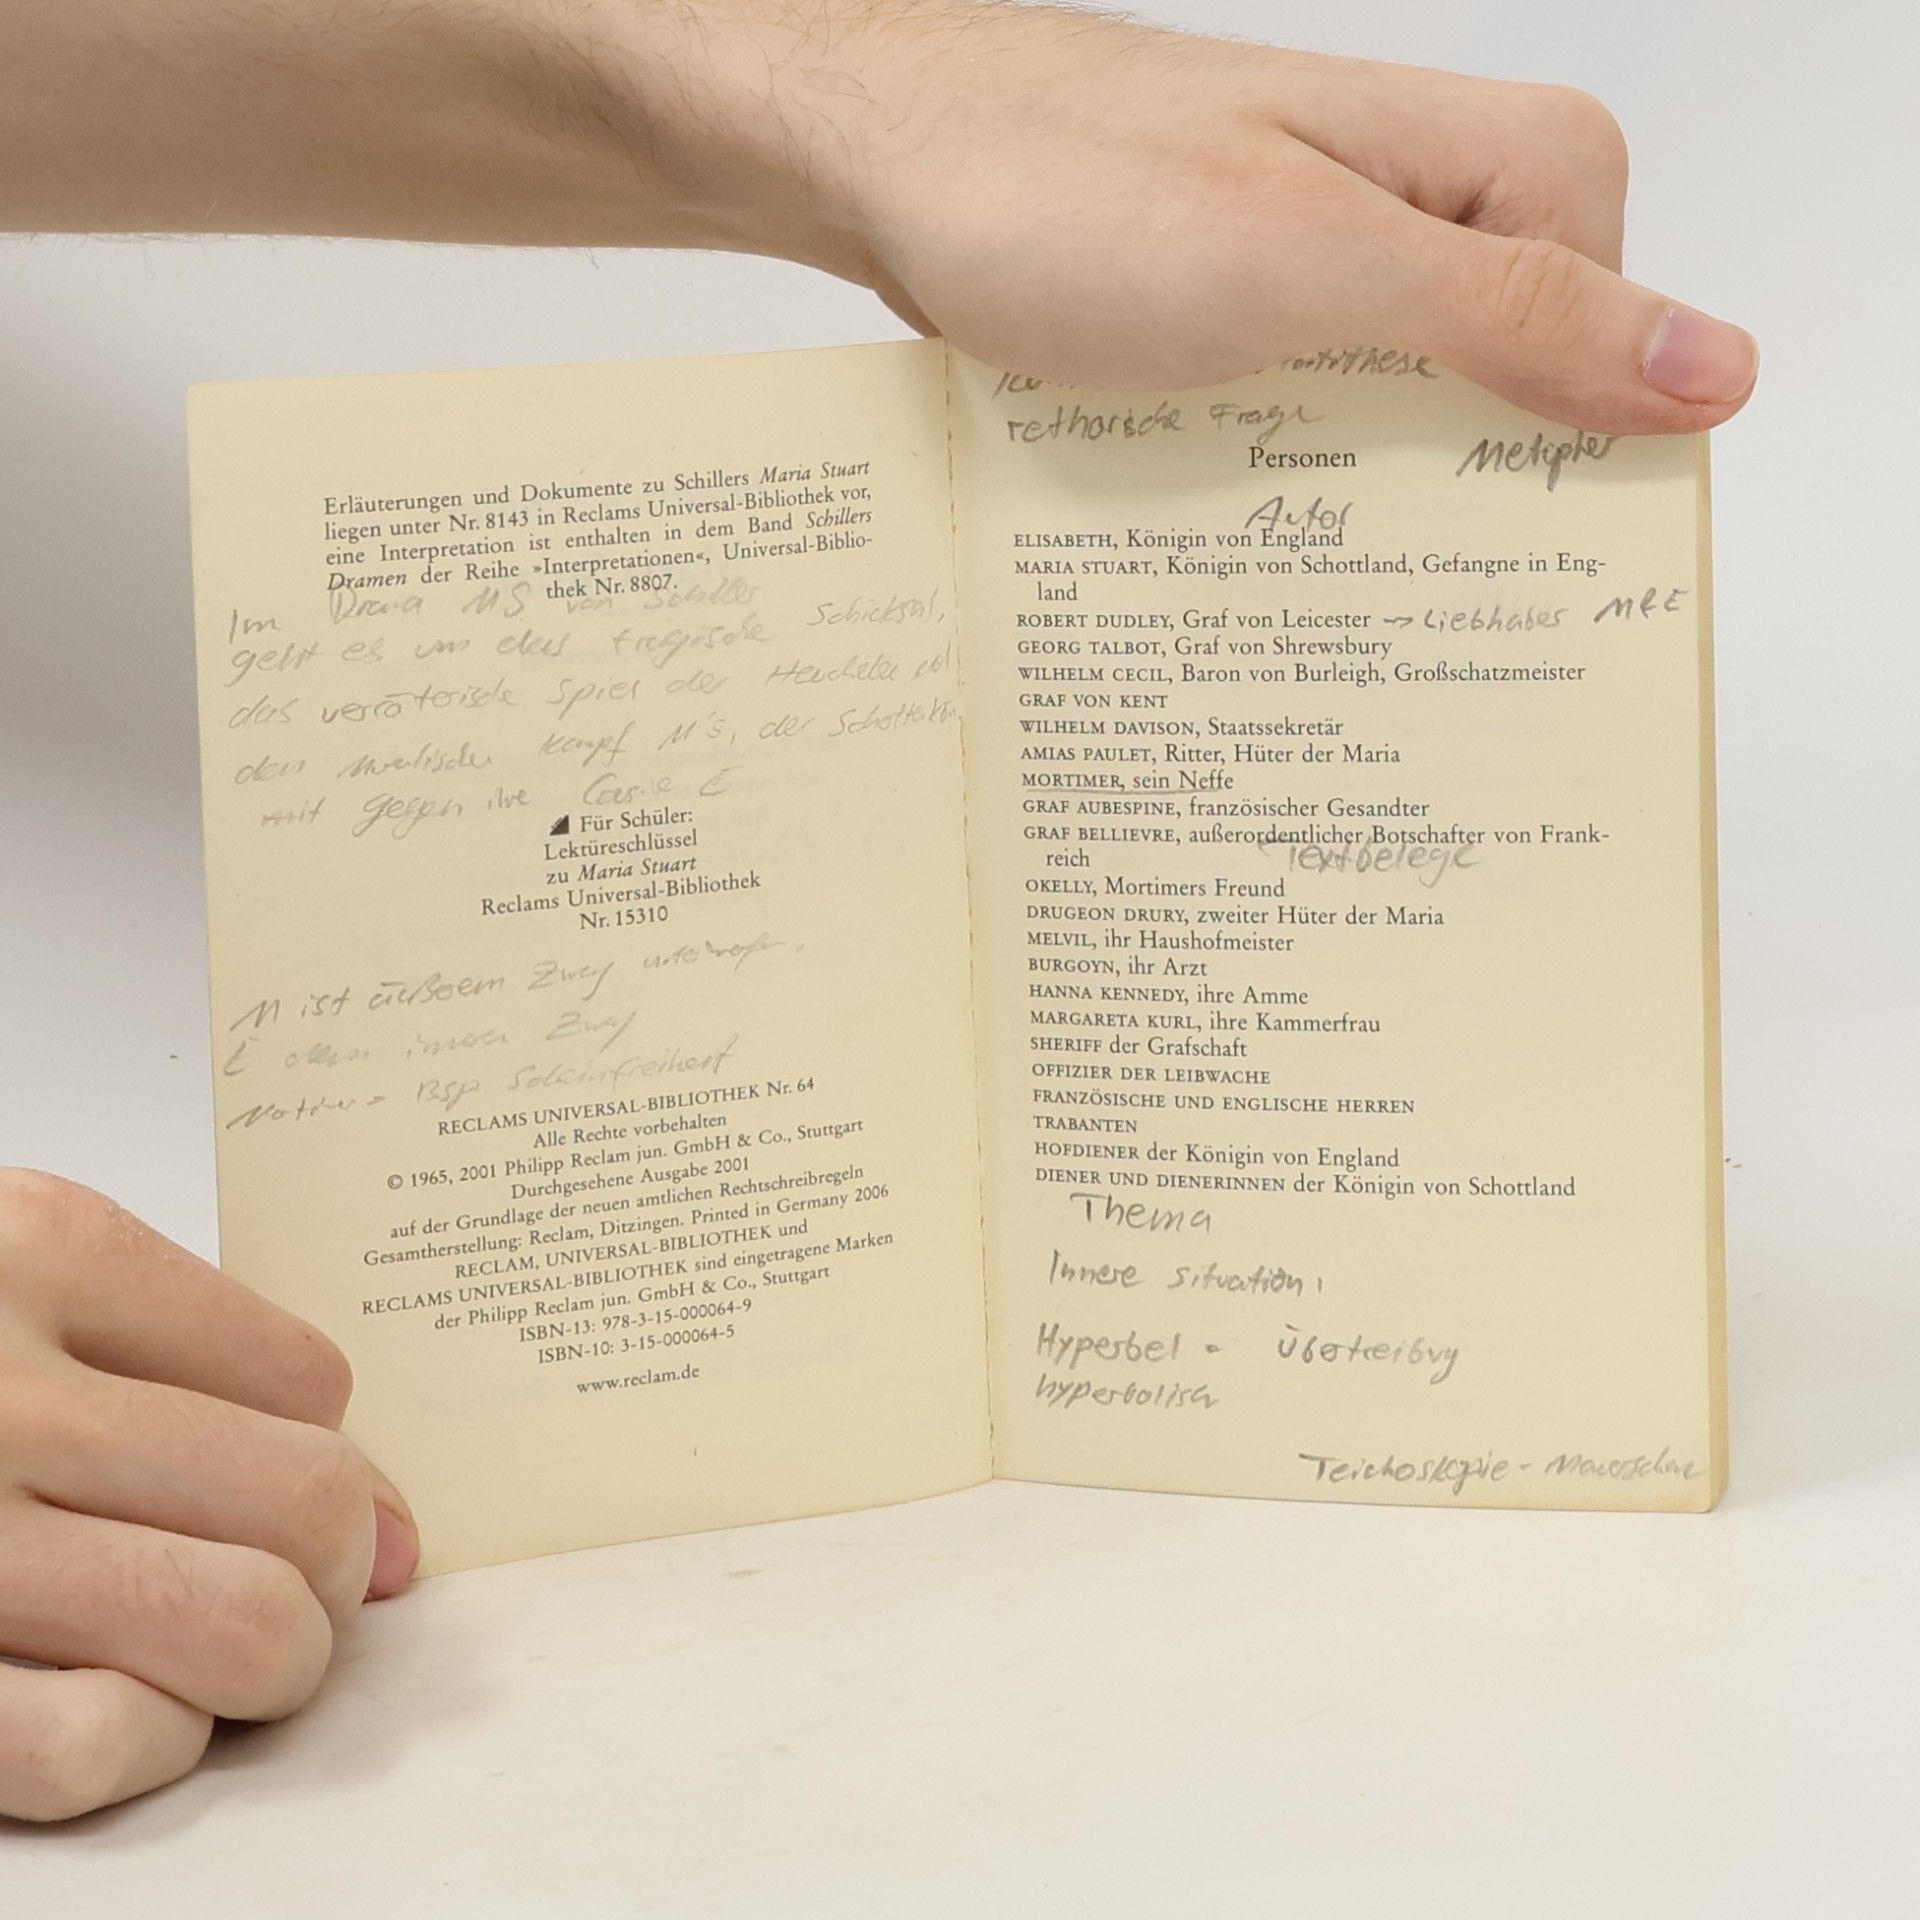 Erläuterungen und Dokumente zu Schillers Maria Stuart
liegen unter Nr. 8143 in Reclams Universal-Bibliothek vor,
eine Interpretation ist enthalten in dem Band Schillers
Dramen der Reihe »Interpretationen«, Universal-Biblio-
thek Nr. 8807.
Im Drama MS von Schiller
geht es um das tragische Schicksal,
das verräterische Spiel der
den Kampf M's, der
mit gegen ihre E
Für Schüler:
Lektüreschlüssel
zu Maria Stuart
Reclams Universal-Bibliothek
Nr. 15310
M ist äußerem Zwang unterworfen,
E dem inneren Zwang
Bsp Scheinfreiheit
RECLAMS UNIVERSAL-BIBLIOTHEK Nr. 64
Alle Rechte vorbehalten
© 1965, 2001 Philipp Reclam jun. GmbH & Co., Stuttgart
Durchgesehene Ausgabe 2001
auf der Grundlage der neuen amtlichen Rechtschreibregeln
Gesamtherstellung: Reclam, Ditzingen. Printed in Germany 2006
RECLAM, UNIVERSAL-BIBLIOTHEK und
RECLAMS UNIVERSAL-BIBLIOTHEK sind eingetragene Marken
der Philipp Reclam jun. GmbH & Co., Stuttgart
ISBN-13: 978-3-15-000064-9
ISBN-10: 3-15-000064-5
www.reclam.de
rethorische Frage
Metapher
Personen
Autor
ELISABETH, Königin von England
MARIA STUART, Königin von Schottland, Gefangne in Eng-
land
ROBERT DUDLEY, Graf von Leicester -> Liebhaber M & E
GEORG TALBOT, Graf von Shrewsbury
WILHELM CECIL, Baron von Burleigh, Großschatzmeister
GRAF VON KENT
WILHELM DAVISON, Staatssekretär
AMIAS PAULET, Ritter, Hüter der Maria
MORTIMER, sein Neffe
GRAF AUBESPINE, französischer Gesandter
GRAF BELLIEVRE, außerordentlicher Botschafter von Frank-
reich
Textbelege
OKELLY, Mortimers Freund
DRUGEON DRURY, zweiter Hüter der Maria
MELVIL, ihr Haushofmeister
BURGOYN, ihr Arzt
HANNA KENNEDY, ihre Amme
MARGARETA KURL, ihre Kammerfrau
SHERIFF der Grafschaft
OFFIZIER DER LEIBWACHE
FRANZÖSISCHE UND ENGLISCHE HERREN
TRABANTEN
HOFDIENER der Königin von England
DIENER UND DIENERINNEN der Königin von Schottland
Thema
Innere Situation,
Hyperbel = Übertreibung
hyperbolisch
Teichoskopie - Mauerschau